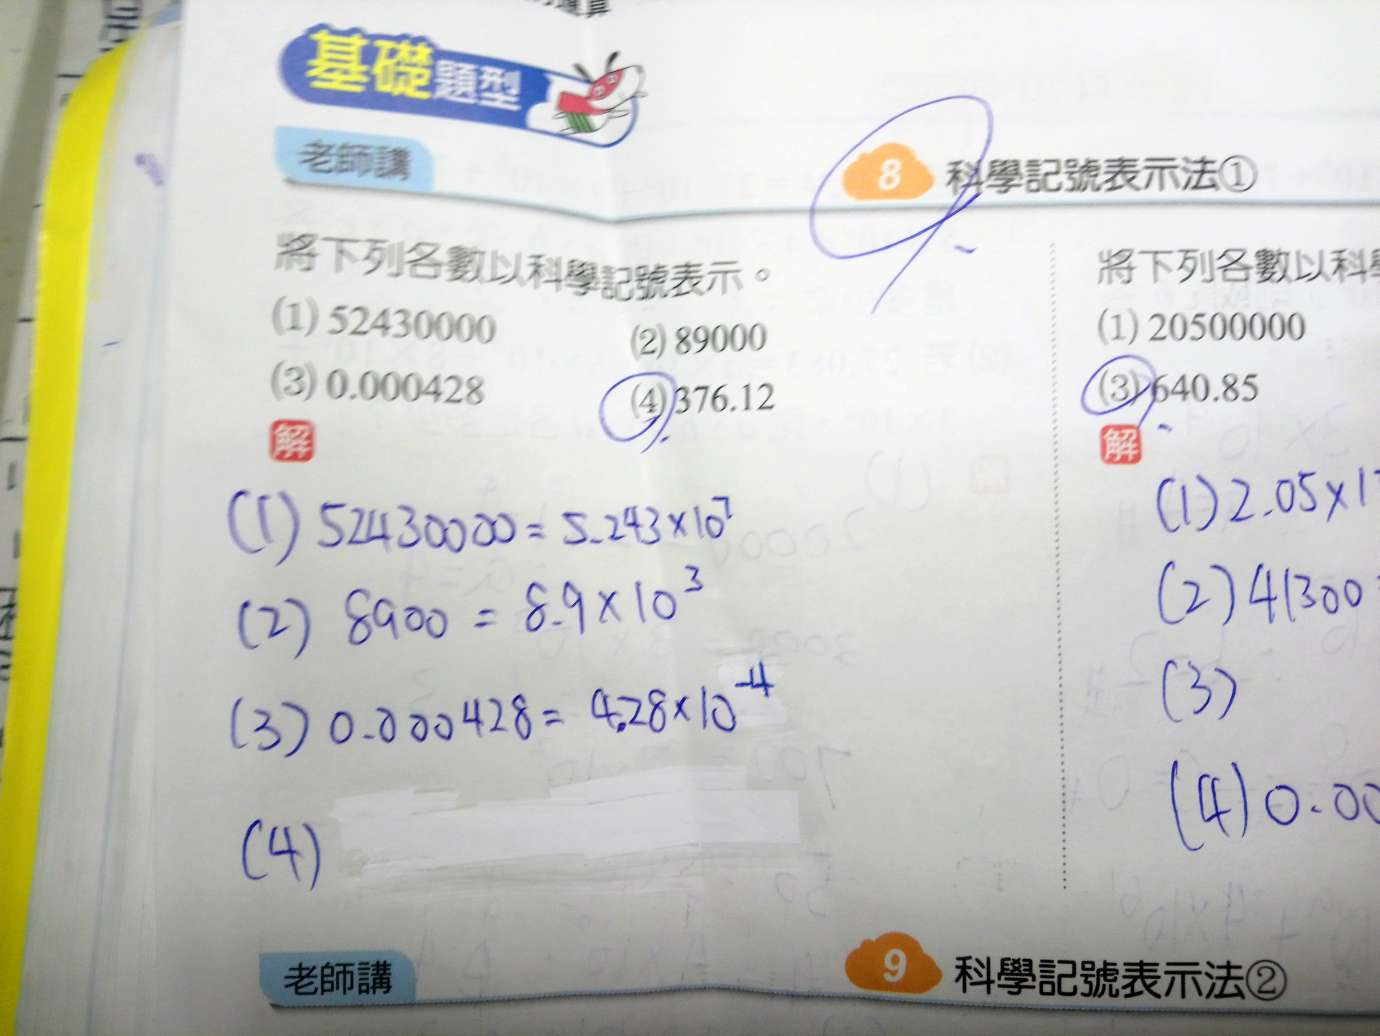 基礎題型
老師講
8 科學記號表示法①
將下列各數以科學記號表示。
(1) 52430000 (2) 89000
(3) 0.000428 (4) 376.12
解
(1) 52430000 = 5.243×10⁷
(2) 8900 = 8.9×10³
(3) 0.000428 = 4.28×10⁻⁴
(4)
將下列各數以科學
(1) 20500000
(3) 640.85
解
(1) 2.05×1
(2) 41300
(3)
(4) 0.00
老師講
9 科學記號表示法②